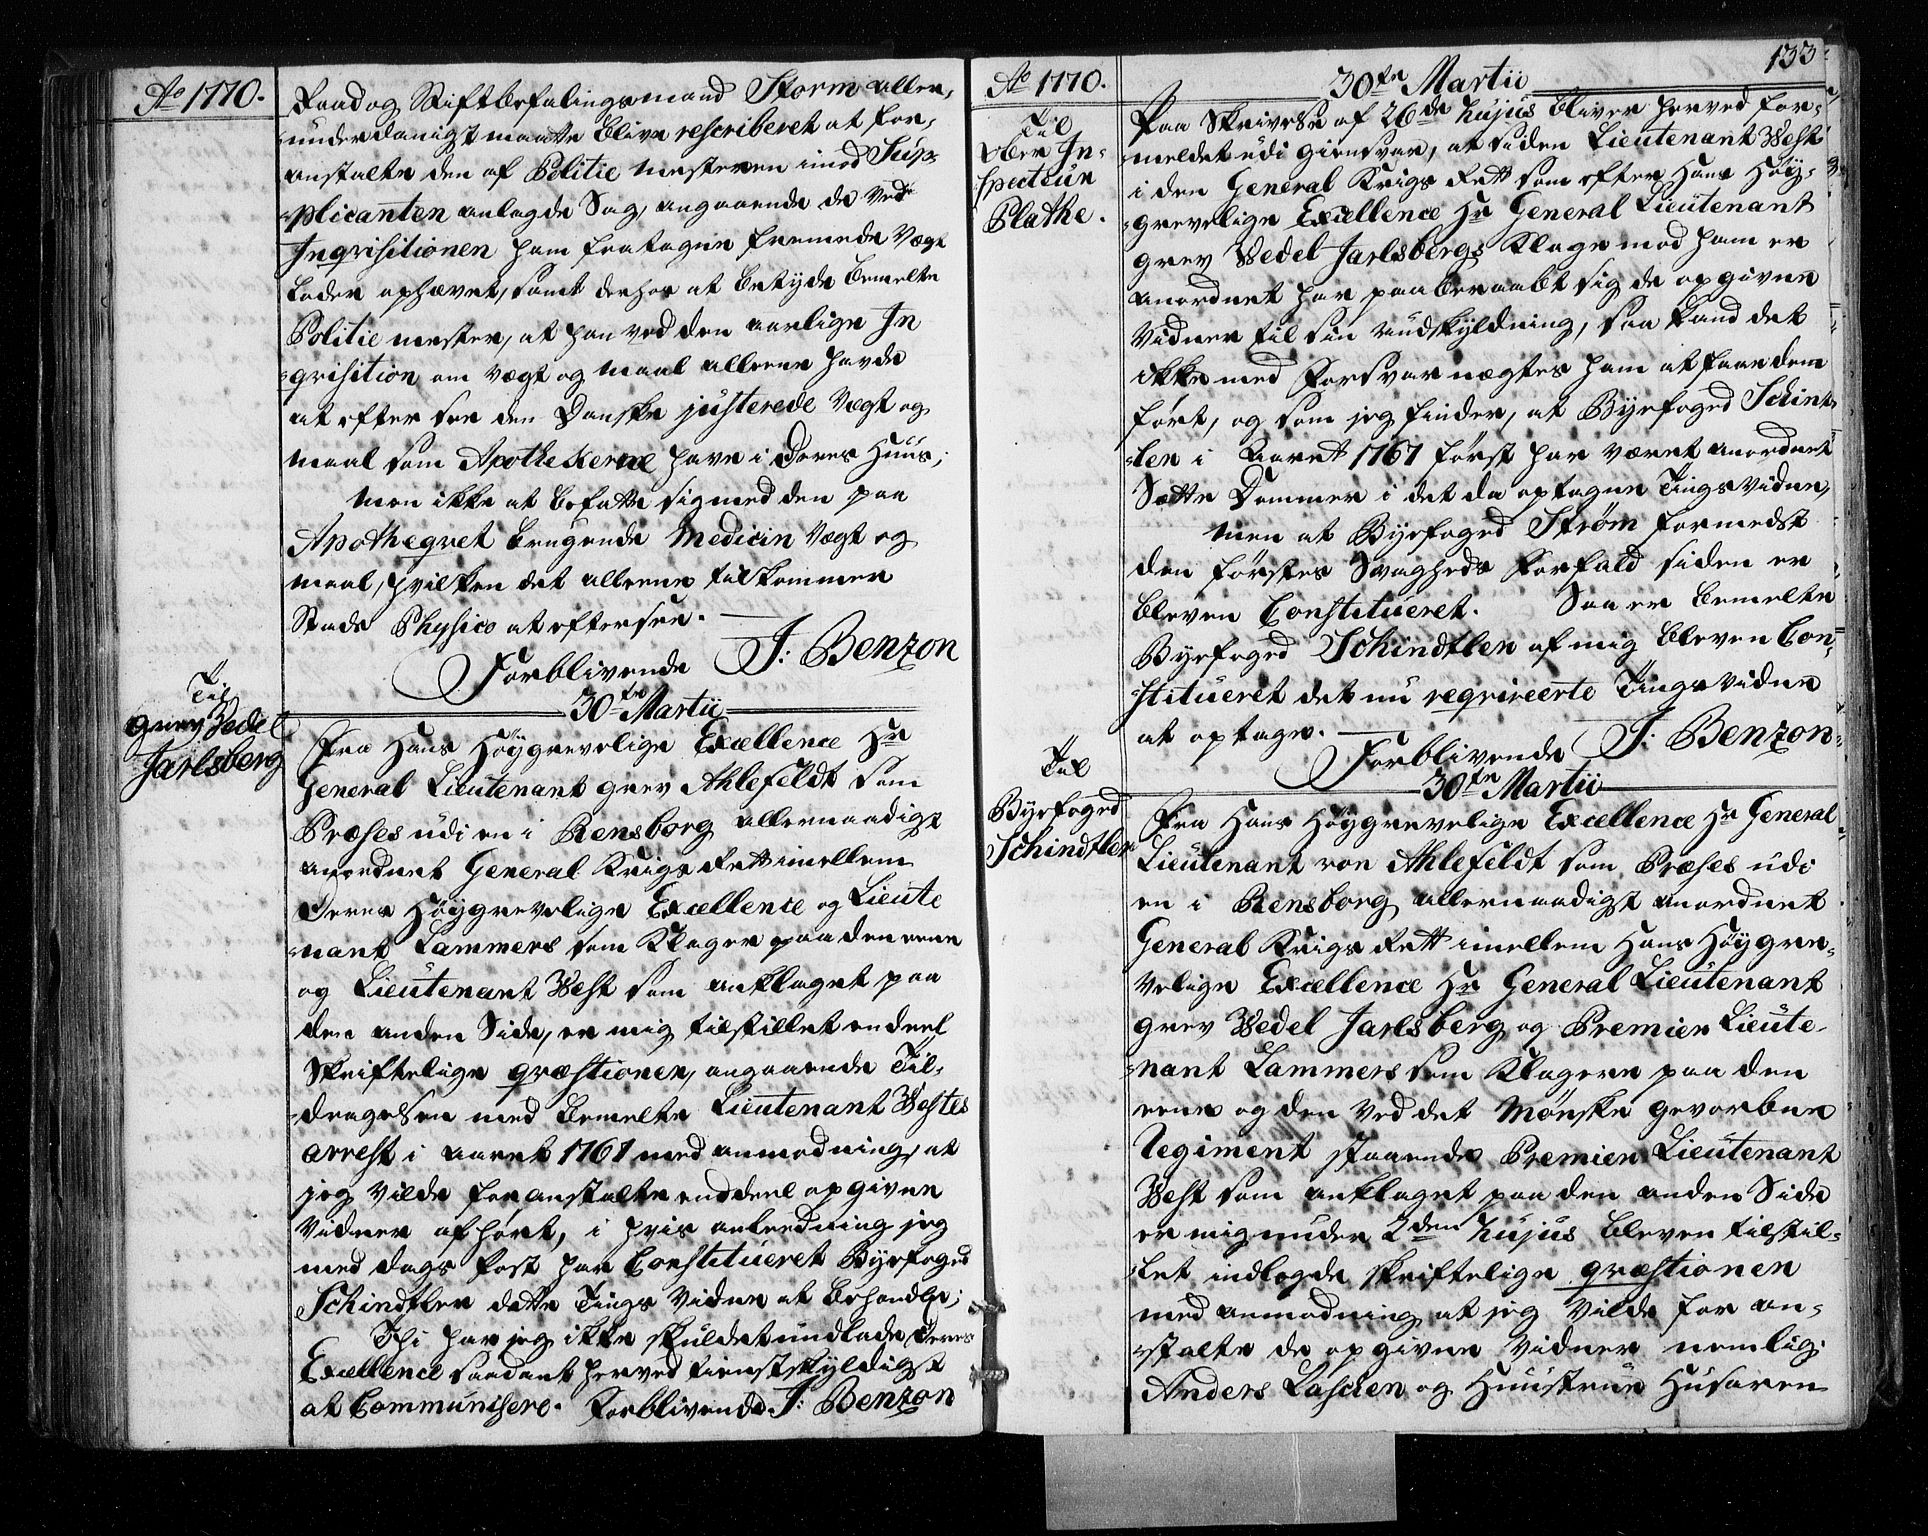 Ao 1770.
Raad og Stiftbefalingsmand Storm aller-
underdanigst maatte blive rescriberet at for-
anstalte den af Politie mesteren imod Sup-
plicanten anlagde Sag, angaaende de ved
Inqvisitionen ham fratagne fremmede Vægt
Loder ophævet, samt derhos at betyde bemelte
Politie mester, at han ved den aarlige In
qvisition om Vægt og maal alleene havde
at efter see den Danske justerede Vægt og
maal som Apothekerne have i Deres Huus;
men ikke at befatte sig med den paa
Apotheqvet brugende Medicin Vægt og
maal, hvilken det alleene tilkommer
Stads Physico at eftersee.
Forblivende J: Benzon
30te Martii
Til
Grev Wedel
Jarlsberg
Fra Hans Høygrevelige Excellence Hr
General Lieutenant grev Ahlefeldt som
Præses udi en i Rensborg allernaadigst
anordnet General Krigs Rett imellem
Deres Høygrevelige Excellence og Lieute
nant Lammers som Klager paa den eene
og Lieutenant West som anklaget paa
den anden Side, er mig tilstillet en deel
Skriftelige qvæstioner, angaaende Til-
dragelsen med bemelte Lieutenant Westes
arrest i aaret 1767 med anmodning, at
jeg vilde foranstalte endeel opgivne
Vidner afhørt, i hvis anledning jeg
med dags Post har Constitueret Byefoged
Schindtler dette Tings Vidne at behandle;
Thi har jeg ikke skuldet undlade Deres
Excellence saadant herved tienstskyldigst
at Communisere. Forblivende J: Benzon
133
Ao 1770.
30te Martii
Til
Ober In-
specteur
Plathe.
Paa Skrivelse af 26de hujus bliver herved for-
meldet udi giensvar, at siden Lieutenant West
i den General Krigs Rett som efter Hans Høy-
grevelige Excellence Hr General Lieutenant
grev Wedel Jarlsbergs Klage mod ham er
anordnet har paaberaabt sig de opgivne
Vidner til sin undskyldning, saa kand det
ikke med Forsvar nægtes ham at faae dem
ført, og som jeg finder, at Byefoged Schint-
ler i Aaret 1767 først har været anordnet
Sætte Dommer i det da optagne Tings Vidne,
men at Byefoged Strøm formedst
den førstes Svagheds Forfald siden er
bleven Constitueret. Saa er bemelte
Byefoged Schindtler af mig bleven Con-
stitueret det nu reqvireerte Tings Vidne
at optage.
Forblivende J: Benzon
30te Martii
Til
Byefoged
Schindtler
Fra Hans Høygrevelige Excellence Hr General
Lieutenant von Ahlefeldt som Præses udi
en i Rensborg allernaadigst anordnet
General Krigs Rett imellem Hans Høygre-
velige Excellence Hr General Lieutenant
grev Wedel Jarlsberg og Premier Lieute-
nant Lammers som Klagere paa den
eene og den ved det Mønske gevorbne
Regiment staaende Premier Lieutenant
West som anklaget paa den anden Side
er mig under 2den hujus bleven tilstil-
let indlagde skriftelige qvæstioner
med anmodning at jeg vilde for an-
stalte de opgivne Vidner nemlig:
Anders Larsen og Huustrue Husaren